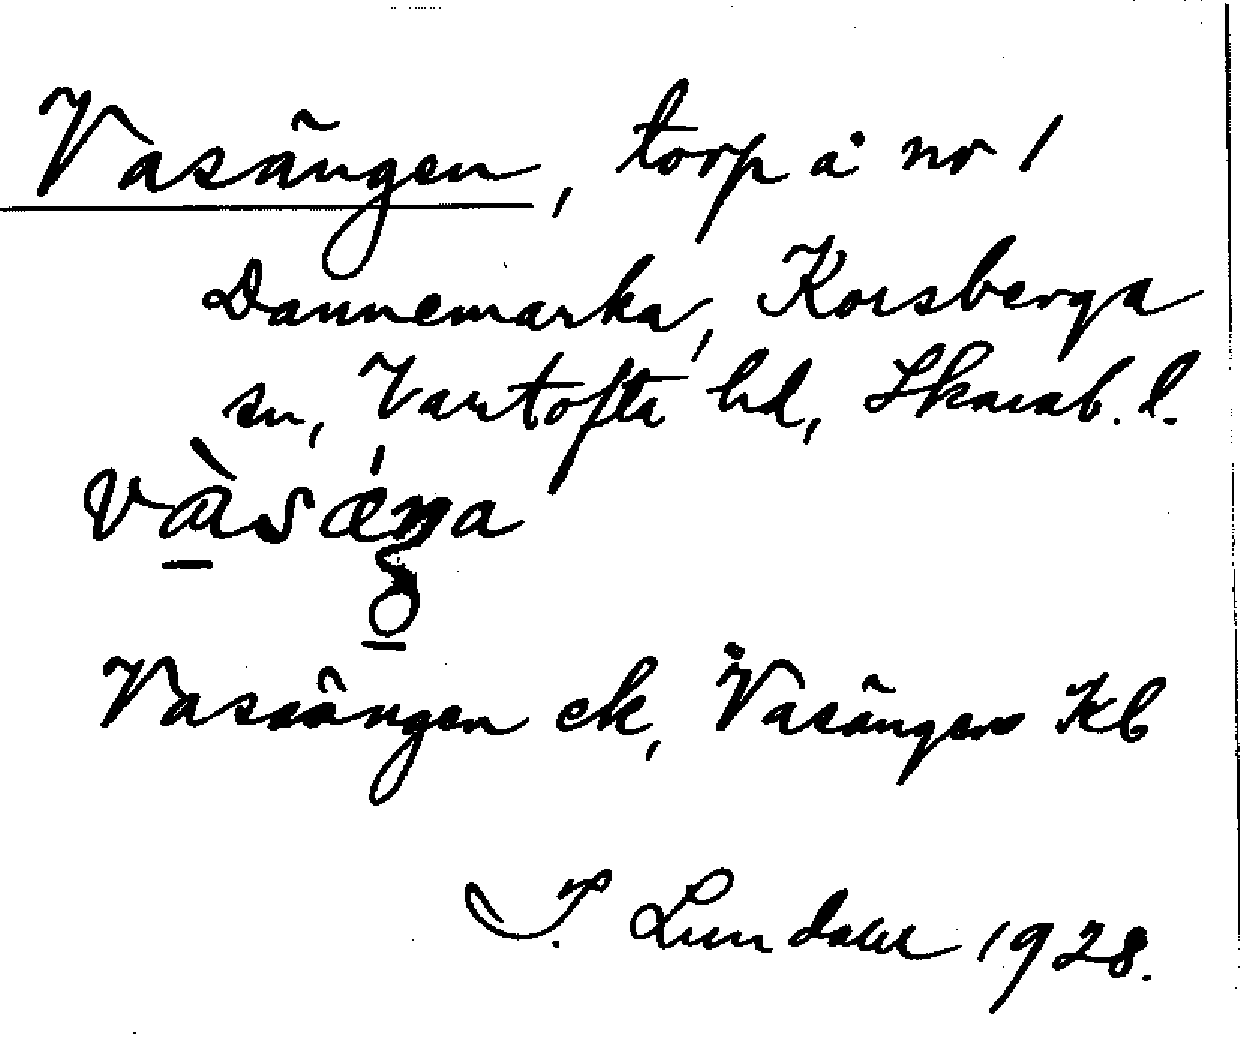 Vasängen, torp å nr 1
Dannemarka, Korsberga
sn, Vartofta hd, Skarab. l.
Vasängen ek, Vasängen Kb
I. Lundahl 1928.